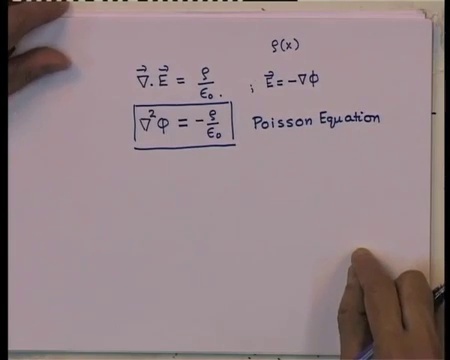 ρ(x)
∇⃗.E⃗ = ρ/ε₀. ; E⃗ = -∇Φ
∇²Φ = -ρ/ε₀ Poisson Equation